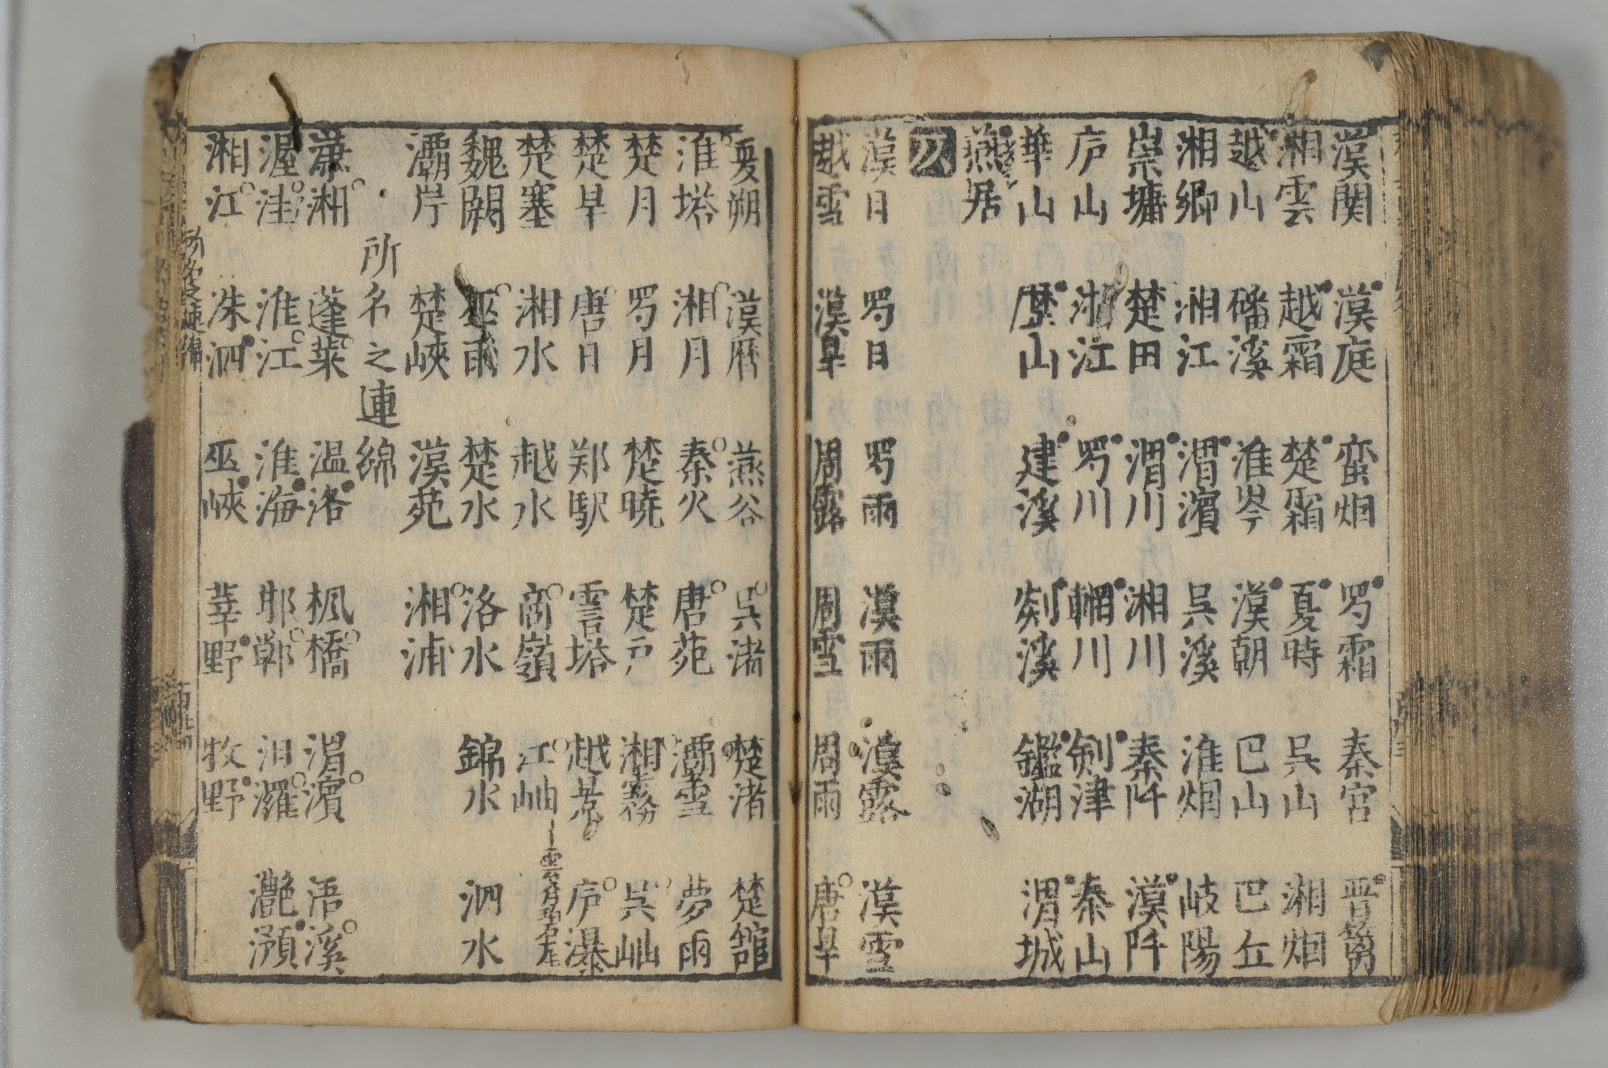 漢関 漢庭 蛮烟 罗霜 秦宮
湘雲 越霜 楚霜 夏時 呉山 湘烟
越山 磻溪 淮岑 漢朝 巴山 巴丘
湘郷 湘江 渭濱 呉溪 淮烟 岐陽
崇墉 楚田 渭川 湘川 秦阡 漢阡
庐山 浙江 罗川 輞川 剣津 秦山
華山 歴山 建溪 剡溪 鑑湖 渭城
燕居
漢日 罗日 罗雨 漢雨 漢露 漢雪
越雪 漢旱 周露 周雪 周雨 唐旱
夏朔 漢暦 燕谷 呉渚 楚渚 楚館
淮塔 湘月 秦火 唐苑 灞雪 夢雨
楚月 罗月 楚暁 楚戸 湘霧 呉岫
楚旱 唐日 郑駅 雲塔 越景 庐瀑
楚塞 湘水 越水 商嶺 江岫
魏闕 巫雨 楚水 洛水 錦水 泗水
灞岸 楚峽 漢苑 湘浦
所名之連綿
瀟湘 蓬莱 温洛 楓橋 渭濱 浯溪
渥洼 淮江 淮海 邯鄲 汨灑 灔澦
湘江 洙泗 巫峽 莘野 牧野